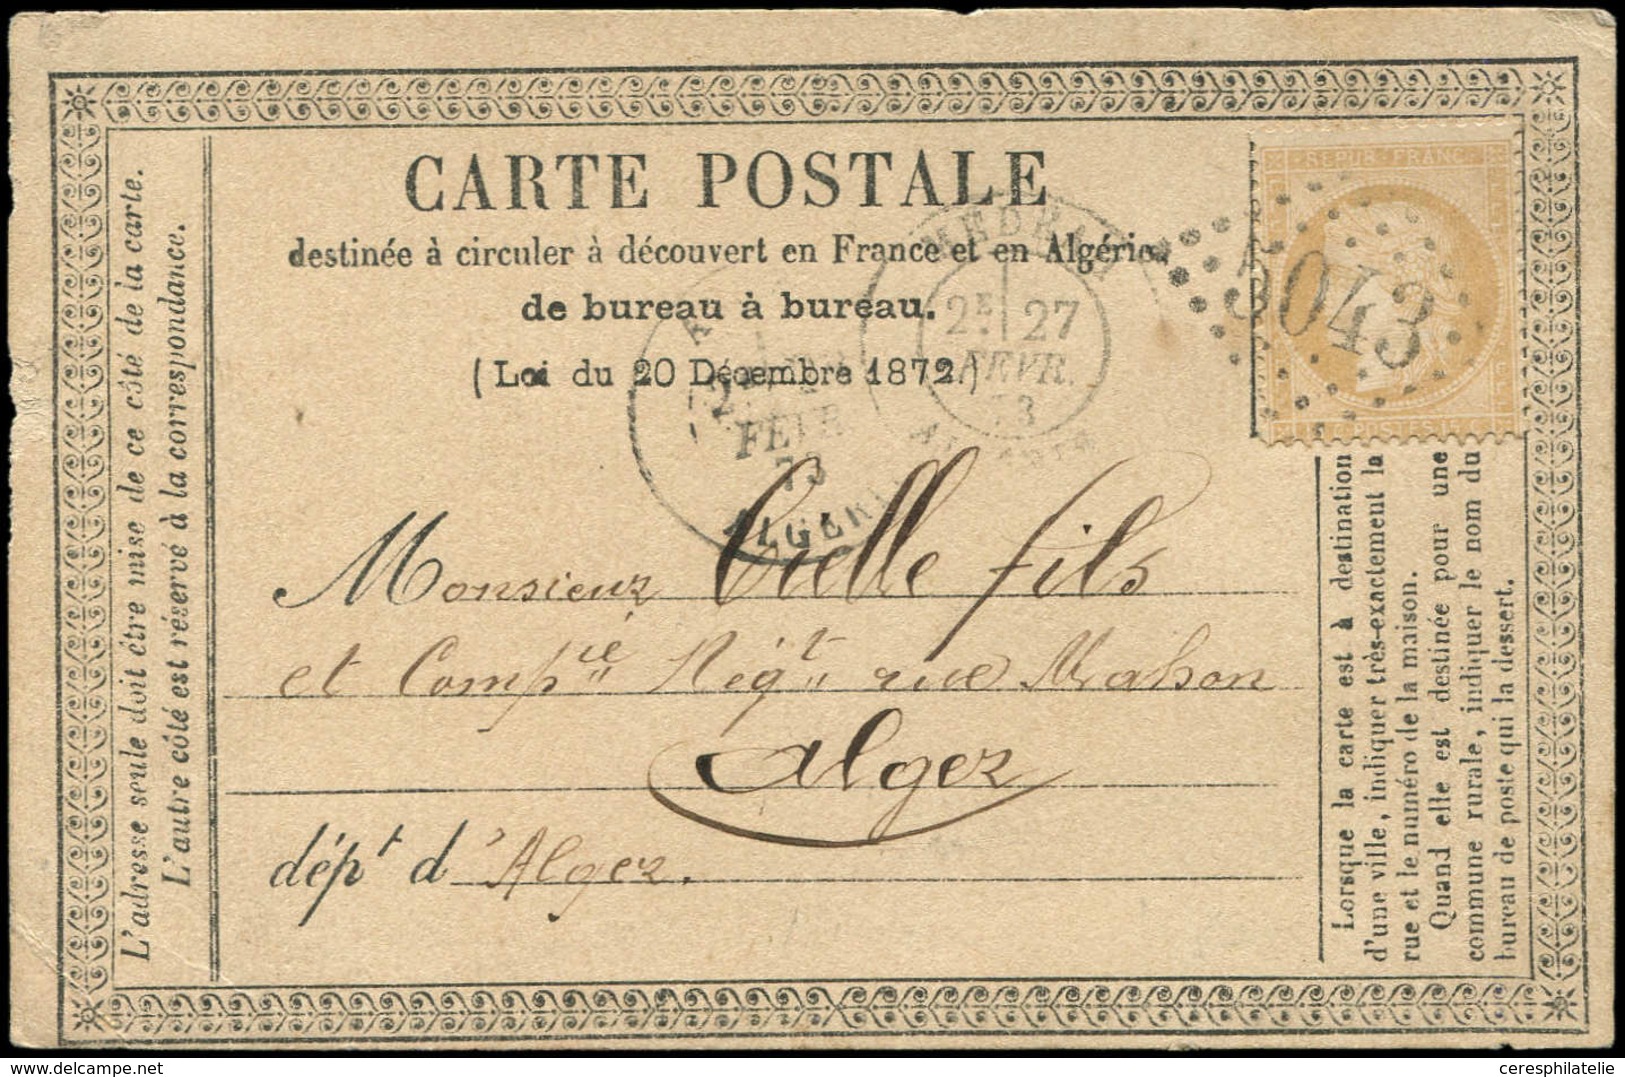 CARTE POSTALE
destinée à circuler à découvert en France et en Algérie
de bureau à bureau.
(Loi du 20 Décembre 1872.)
L'adresse seule doit être mise de ce côté de la carte.
L'autre côté est réservé à la correspondance.
REPUB. FRANC.
POSTES 15 C
5043
MEDEAH
2E 27
FEVR.
73
FEVR
73
ALGERIE
Monsieur Vielle fils
et Compie Négt rue Mahon
Alger
dépt d'Alger.
Lorsque la carte est à destination
d'une ville, indiquer très-exactement la
rue et le numéro de la maison.
Quand elle est destinée pour une
commune rurale, indiquer le nom du
bureau de poste qui la dessert.
www.delcampe.net
ceresphilatelie